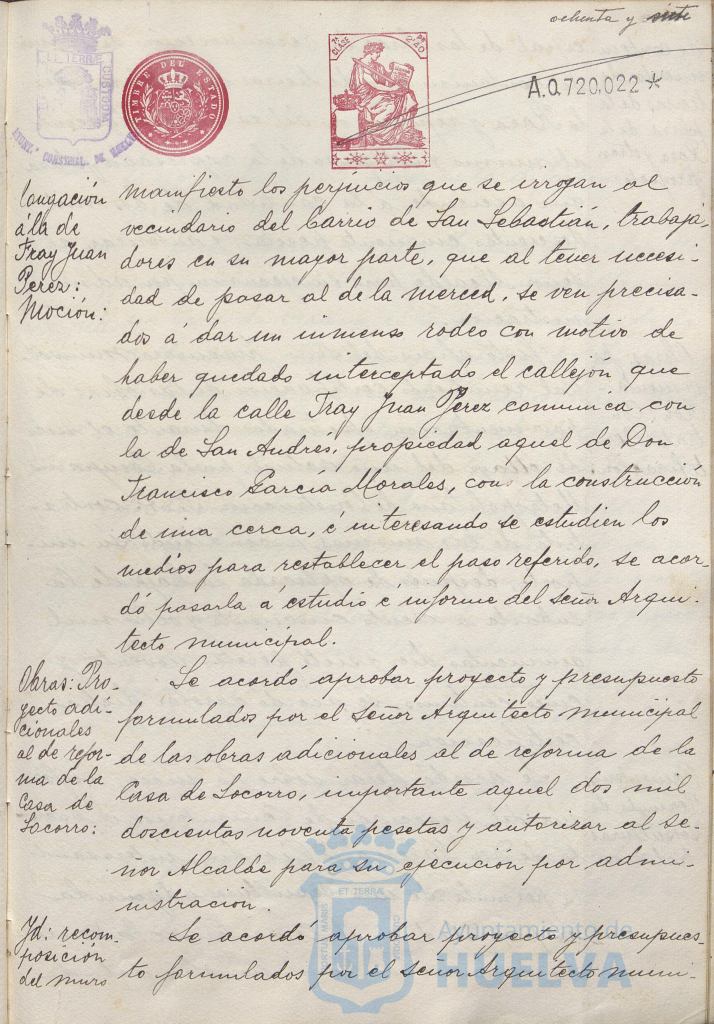 ochenta y siete
TIMBRE DEL ESTADO
7ª CLASE
A.0.720,022*
AYUNTº CONSTNAL. DE HUELVA
longación
á la de
Fray Juan
Perez:
Moción:
manifiesto los perjuicios que se irrogan al
vecindario del barrio de San Sebastián, trabaja-
dores en su mayor parte, que al tener necesi-
dad de pasar al de la merced, se ven precisa-
dos á dar un inmenso rodeo con motivo de
haber quedado interceptado el callejón que
desde la calle Fray Juan Perez comunica con
la de San Andrés, propiedad aquel de Don
Francisco García Morales, con la construcción
de una cerca, é interesando se estudien los
medios para restablecer el paso referido, se acor-
dó pasarla á estudio é informe del señor Arqui-
tecto municipal.
Obras: Pro-
yecto adi-
cionales
al de refor-
ma de la
Casa de
Socorro:
Se acordó aprobar proyecto y presupuesto
formulados por el señor Arquitecto municipal
de las obras adicionales al de reforma de la
Casa de Socorro, importante aquel dos mil
doscientas noventa pesetas y autorizar al se-
ñor Alcalde para su ejecución por admi-
nistración.
Yd: recom-
posición
del muro
Se acordó aprobar proyecto y presupues-
to formulados por el señor Arquitecto muni-
Ayuntamiento de
HUELVA